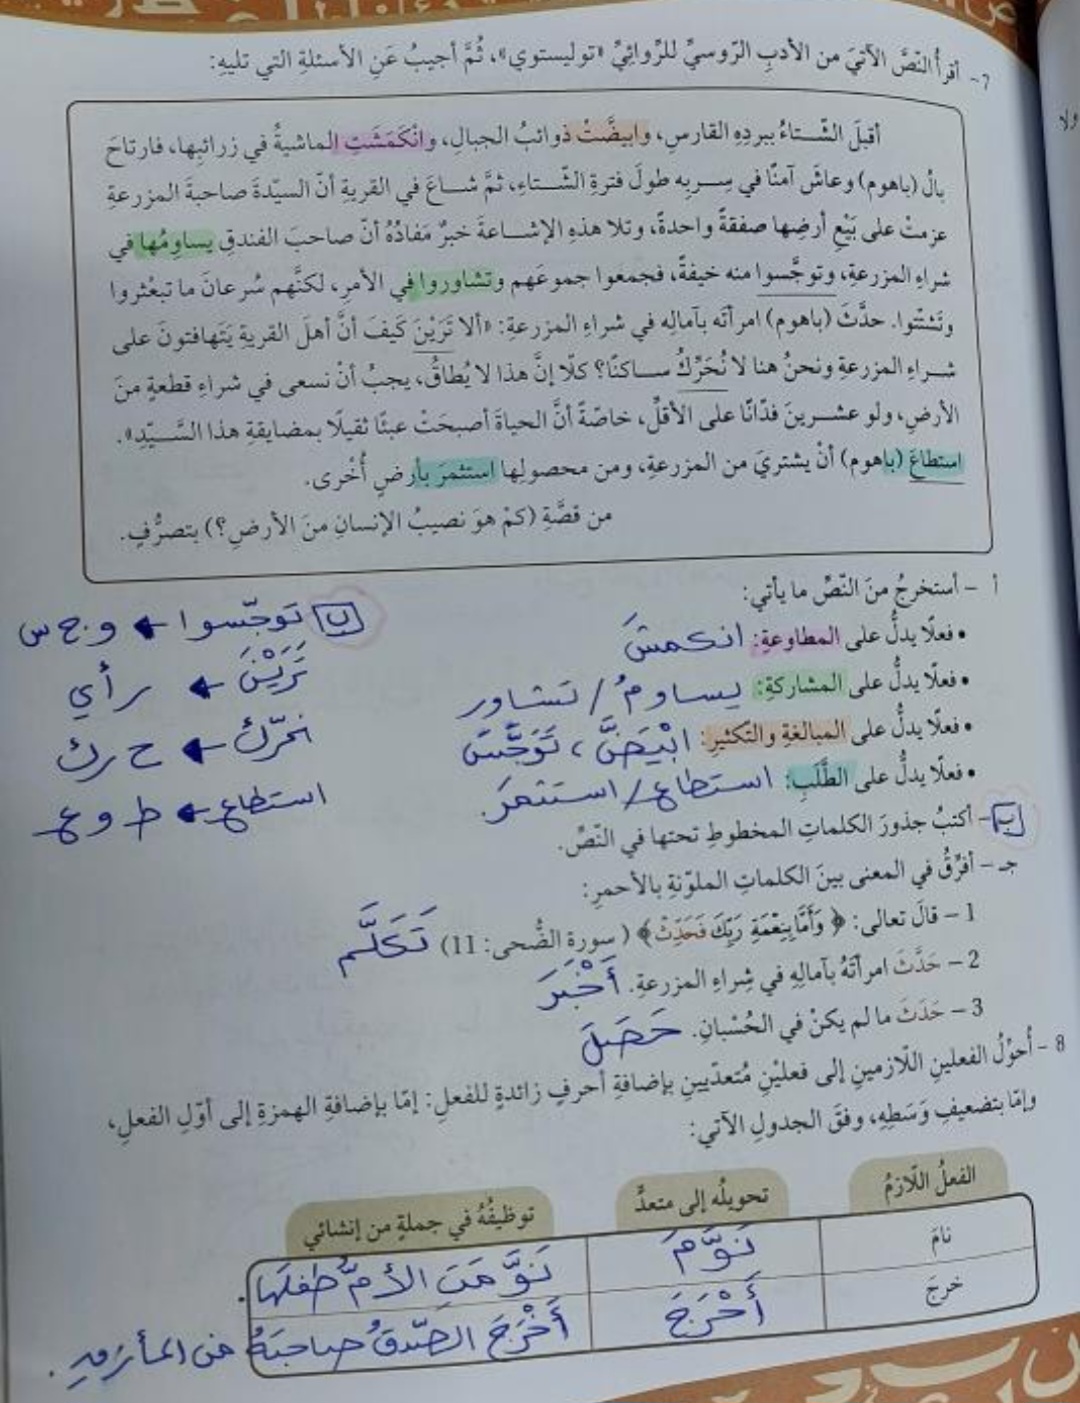 7- أقرأُ النّصَّ الآتيَ من الأدبِ الرّوسيِّ للرّوائيِّ «توليستوي»، ثُمَّ أجيبُ عَنِ الأسئلةِ التي تليهِ:
أقبلَ الشّتاءُ ببردِهِ القارسِ، وابيضَّتْ ذوائبُ الجبالِ، وانْكَمَشَتِ الماشيةُ في زرائبِها، فارتاحَ
بالُ (باهوم) وعاشَ آمنًا في سِربِه طولَ فترةِ الشّتاءِ، ثمَّ شاعَ في القريةِ أنّ السيّدةَ صاحبةَ المزرعةِ
عزمتْ على بَيْعِ أرضِها صفقةً واحدةً، وتلا هذهِ الإشاعةَ خبرٌ مَفادُهُ أنّ صاحبَ الفندقِ يساومُها في
شراءِ المزرعةِ، وتوجَّسوا منه خيفةً، فجمعوا جموعَهم وتشاوروا في الأمرِ، لكنَّهم سُرعانَ ما تبعْثروا
وتَشتّتوا. حدَّثَ (باهوم) امرأتَه بآمالِه في شراءِ المزرعةِ: «ألا تَرَيْنَ كَيفَ أنَّ أهلَ القريةِ يَتَهافتونَ على
شراءِ المزرعةِ ونحنُ هنا لا نُحَرِّكُ ساكنًا؟ كلّا إنَّ هذا لا يُطاقُ، يجبُ أنْ نسعى في شراءِ قطعةٍ منَ
الأرضِ، ولو عشرينَ فدّانًا على الأقلِّ، خاصّةً أنَّ الحياةَ أصبحَتْ عبئًا ثقيلًا بمضايقةِ هذا السَّيّدِ».
استطاعَ (باهوم) أنْ يشتريَ من المزرعةِ، ومن محصولِها استثمرَ بأرضٍ أُخْرى.
من قصَّةِ (كمْ هوَ نصيبُ الإنسانِ منَ الأرضِ؟) بتصرُّفٍ.
أ - أستخرجُ منَ النّصِّ ما يأتي:
• فعلًا يدلُّ على المطاوعةِ: انكمشَ
• فعلًا يدلُّ على المشاركةِ: يساومُ / تشاور
• فعلًا يدلُّ على المبالغةِ والتّكثيرِ: ابْيَضَّ، تَوَجَّسَ
• فعلًا يدلُّ على الطَّلَبِ: استطاع / استثمرَ.
ب تَوجّسوا ← و ج س
تَرَيْنَ ← رأي
نحرّكُ ← ح ر ك
استطاع ← ط و ع
ب- أكتبُ جذورَ الكلماتِ المخطوطِ تحتها في النّصِّ.
جـ - أفرِّقُ في المعنى بينَ الكلماتِ الملوّنةِ بالأحمرِ:
1 - قالَ تعالى: ﴿وَأَمَّا بِنِعْمَةِ رَبِّكَ فَحَدِّثْ﴾ (سورة الضُّحى: 11) تَكَلَّم
2 - حَدَّثَ امرأتَهُ بآمالِهِ في شِراءِ المزرعةِ. أَخْبَرَ
3 - حَدَثَ ما لم يكنْ في الحُسْبانِ. حَصَلَ
8 - أُحوِّلُ الفعلينِ اللّازمينِ إلى فعليْنِ مُتعدّيينِ بإضافةِ أحرفٍ زائدةٍ للفعلِ: إمّا بإضافةِ الهمزةِ إلى أوّلِ الفعلِ،
وإمّا بتضعيفِ وَسَطِهِ، وفقَ الجدولِ الآتي:
الفعلُ اللّازمُ تحويلُه إلى متعدٍّ توظيفُهُ في جملةٍ من إنشائي
نامَ نوَّمَ نَوَّمَتِ الأمُّ طفلَها.
خرجَ أَخْرَجَ أَخْرَجَ الصّدقُ صاحبَهُ من المأزقِ.